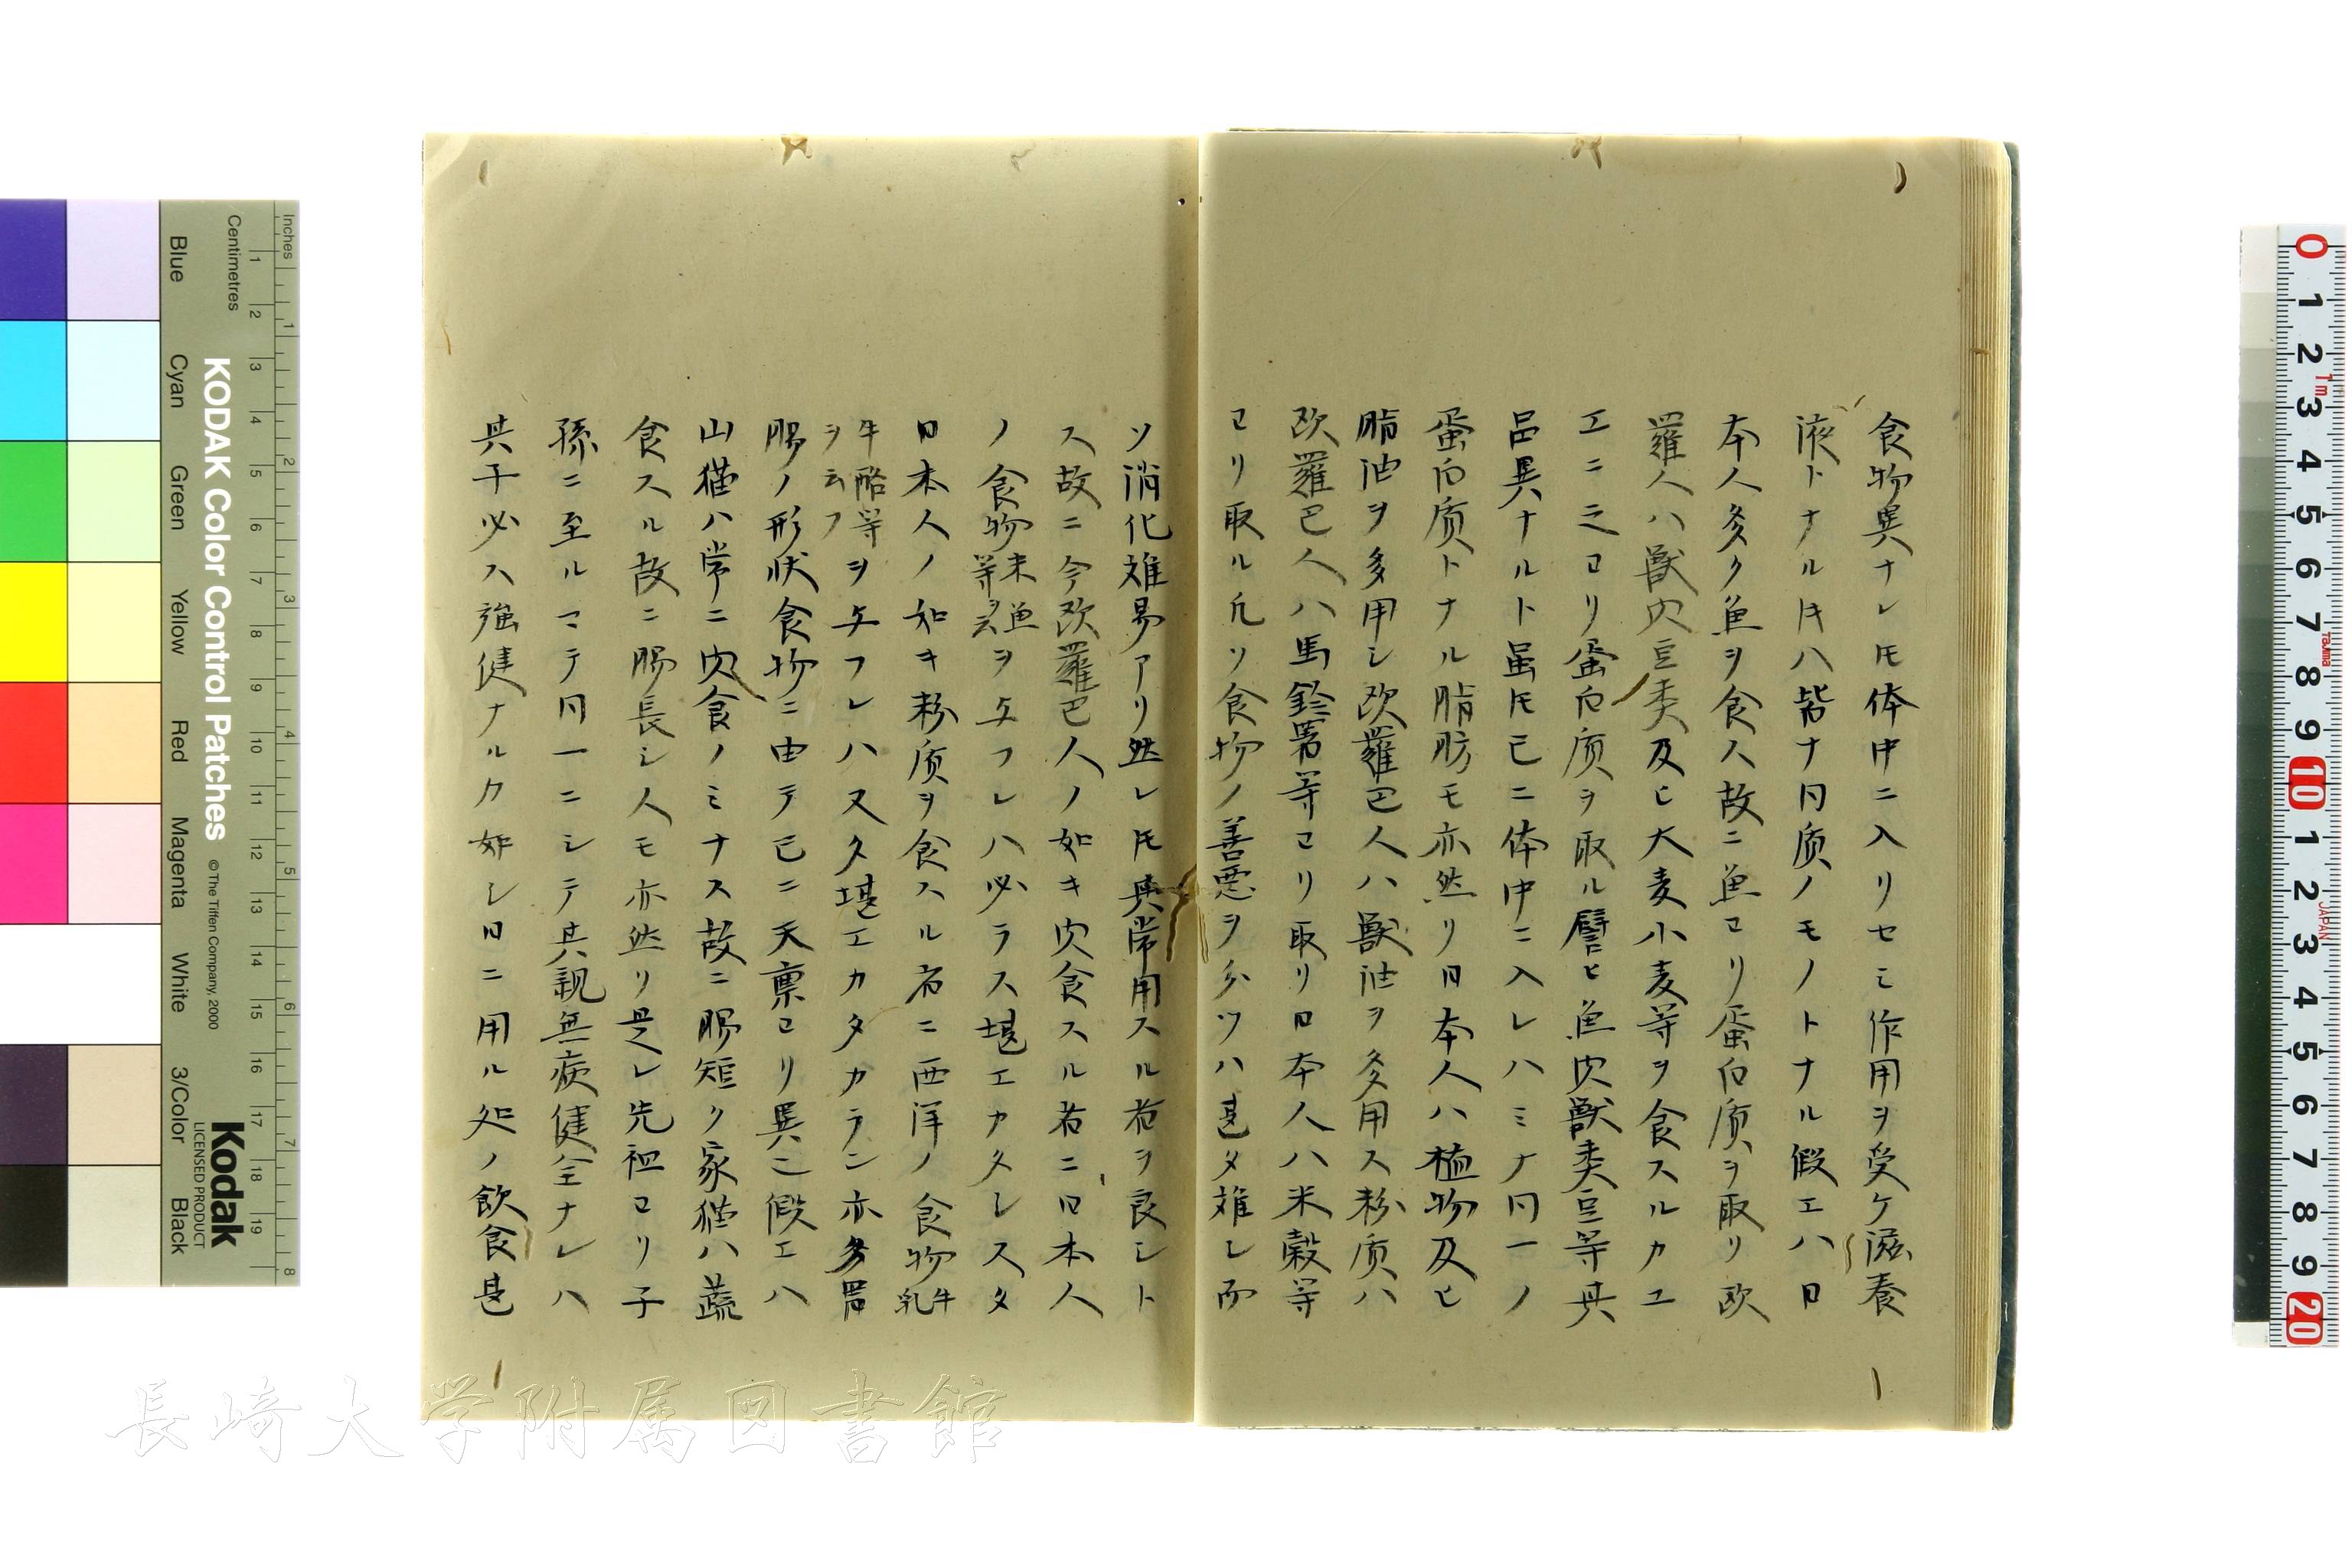 食物異ナレ𪜈体中ニ入リセミ作用ヲ受ケ滋養
液トナルキハ皆ナ同质ノモノトナル假エハ日
本人多ク魚ヲ食ス故ニ魚ヨリ蛋白质ヲ取リ欧
羅人ハ獣肉豆类及ヒ大麦小麦等ヲ食スルカユ
エニ之ヨリ蛋白质ヲ取ル譬ヒ魚肉獣类豆等其
品異ナルト虽𪜈已ニ体中ニ入レハミナ同一ノ
蛋白质トナル脂肪モ亦然リ日本人ハ植物及ヒ
脂油ヲ多用シ欧羅巴人ハ獣油ヲ多用ス粉质ハ
欧羅巴人ハ馬鈴薯等ヨリ取リ日本人ハ米榖等
ヨリ取ル凢ソ食物ノ善悪ヲ分ツハ甚タ难シ而
ソ消化难易アリ然レ𪜈其常用スル者ヲ良シト
ス故ニ今欧羅巴人ノ如キ肉食スル者ニ日本人
ノ食物米魚等ヲ云ヲ与フレハ必ラス堪エカタシスタ
日本人ノ如キ粉质ヲ食スル者ニ西洋ノ食物牛乳
牛酪等ヲ云フヲ与フレハ又タ堪エカタカラン亦タ胃
腸ノ形状食物ニ由テ已ニ天禀ヨリ異ニ假エハ
山猫ハ常ニ肉食ノミナス故ニ腸短ク家猫ハ蔬
食スル故ニ腸長シ人モ亦然リ是レ先祖ヨリ子
孫ニ至ルマテ同一ニシテ其親無病健全ナレハ
其子必ス強健ナルカ如シ日ニ用ル処ノ飲食甚
KODAK Color Control Patches
© The Tiffen Company, 2000
Kodak
LICENSED PRODUCT
Inches
Centimetres
Blue
Cyan
Green
Yellow
Red
Magenta
White
3/Color
Black
1 2 3 4 5 6 7 8 9 10 11 12 13 14 15 16 17 18 19
1 2 3 4 5 6 7 8
0 1 2 3 4 5 6 7 8 9 10 1 2 3 4 5 6 7 8 9 20
1m
Tajima
JAPAN
長崎大学附属図書館